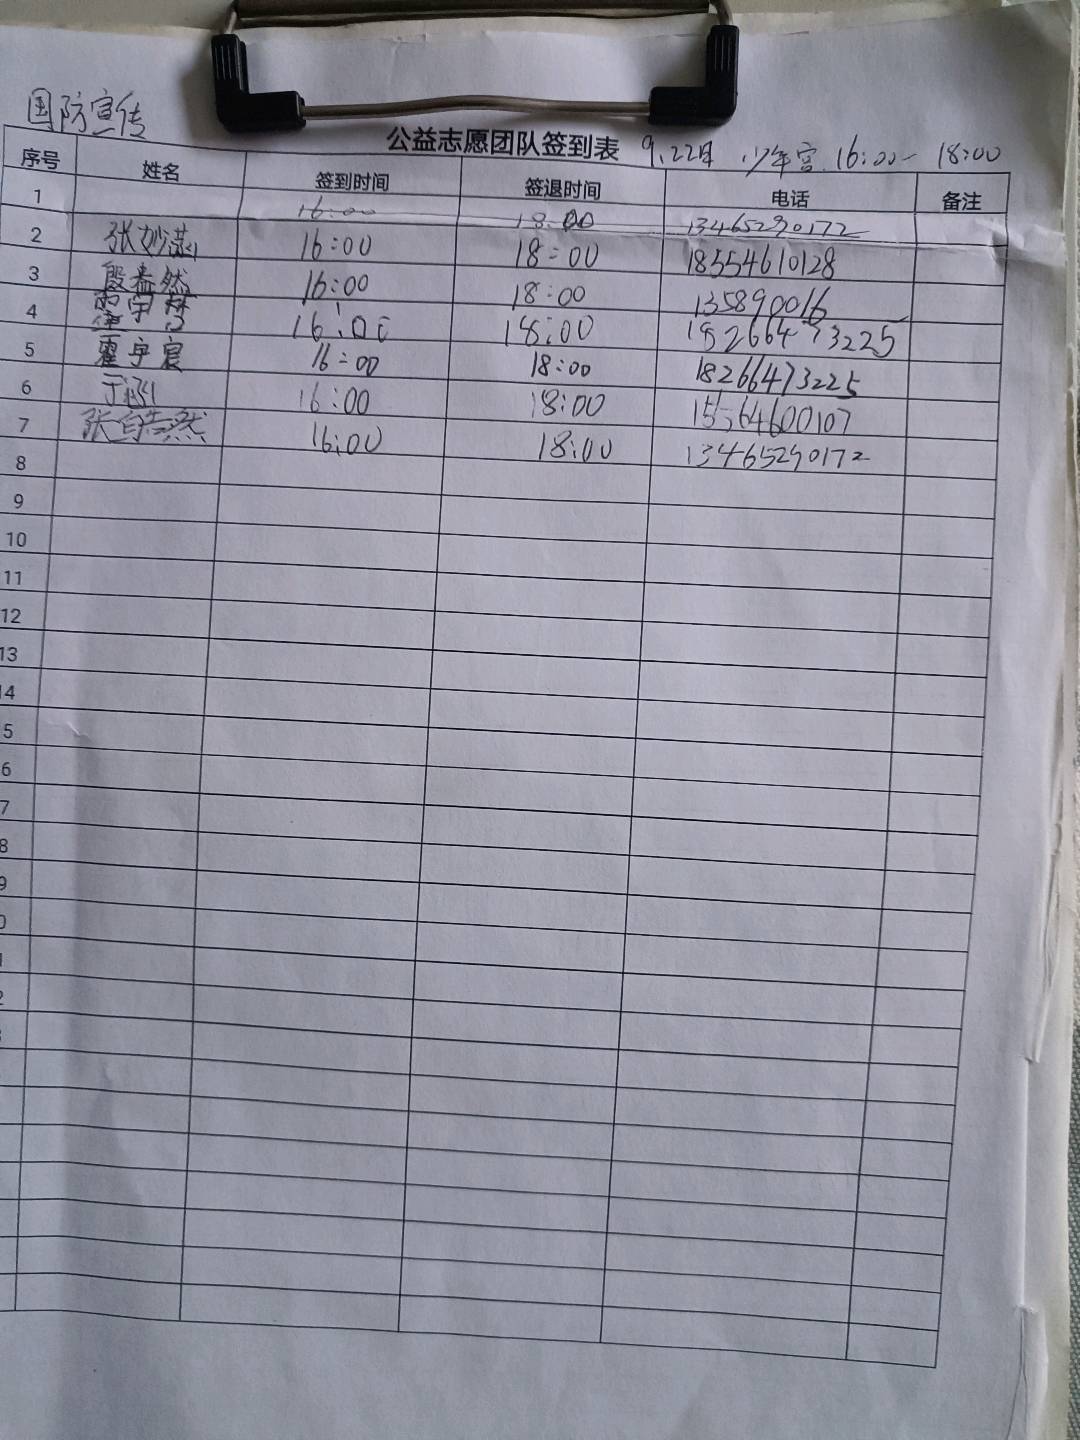 国防宣传
公益志愿团队签到表 9.22日 少年宫 16:00-18:00
序号 姓名 签到时间 签退时间 电话 备注
1 16:00 18:00 13465290172
2 张妙涵 16:00 18:00 18554610128
3 殷孟然 16:00 18:00 135890016
4 16:00 18:00 18266473225
5 霍宇宸 16:00 18:00 18266473225
6 于 16:00 18:00 15564600107
7 张皓然 16:00 18:00 13465290172
8
9
10
11
12
13
14
5
6
7
8
9
0
1
2